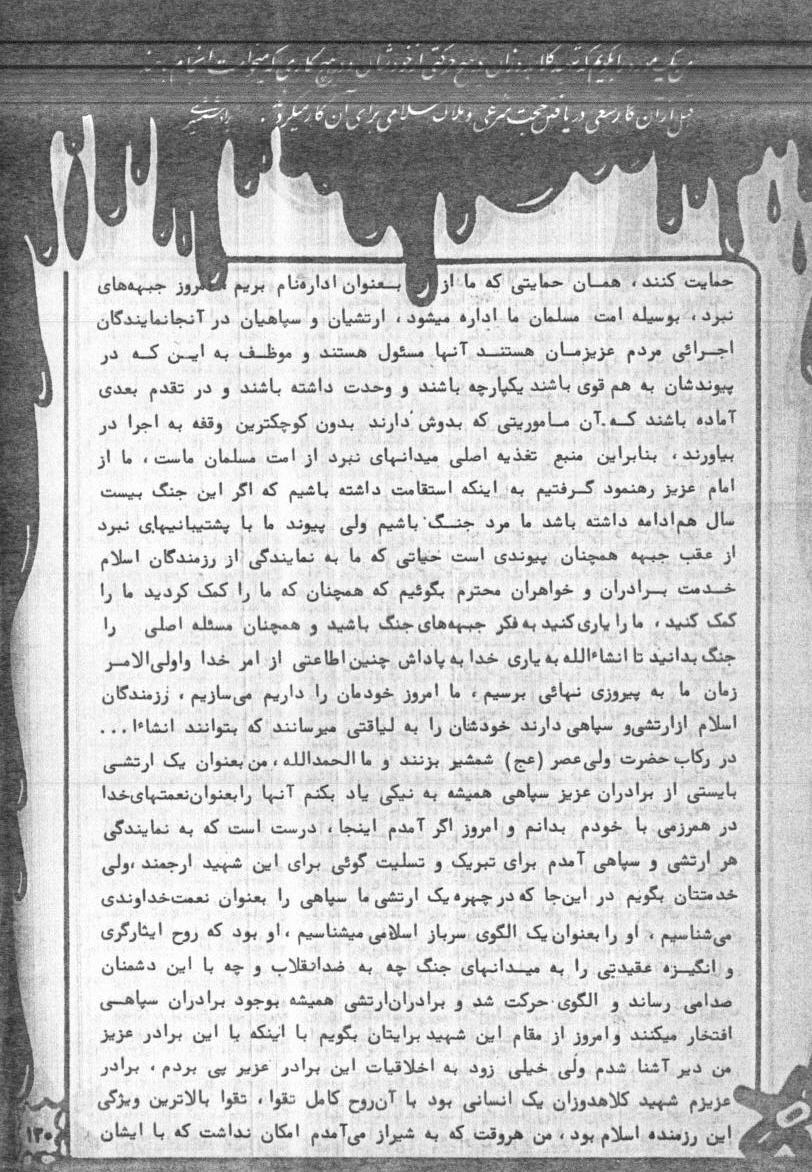 قبل از آن کار سعی در یافتن حجت شرعی و ملاک اسلامی برای آن کار میکرد
حمایت کنند، همان حمایتی که ما از بعنوان اداره‌نام بریم امروز جبهه‌های
نبرد، بوسیله امت مسلمان ما اداره میشود، ارتشیان و سپاهیان در آنجانمایندگان
اجرائی مردم عزیزمان هستند آنها مسئول هستند و موظف به این که در
پیوندشان به هم قوی باشند یکپارچه باشند و وحدت داشته باشند و در تقدم بعدی
آماده باشند که آن ماموریتی که بدوش دارند بدون کوچکترین وقفه به اجرا در
بیاورند، بنابراین منبع تغذیه اصلی میدانهای نبرد از امت مسلمان ماست، ما از
امام عزیز رهنمود گرفتیم به اینکه استقامت داشته باشیم که اگر این جنگ بیست
سال هم‌ادامه داشته باشد ما مرد جنگ باشیم ولی پیوند ما با پشتیبانیهای نبرد
از عقب جبهه همچنان پیوندی است حیاتی که ما به نمایندگی از رزمندگان اسلام
خدمت برادران و خواهران محترم بگوئیم که همچنان که ما را کمک کردید ما را
کمک کنید، ما را یاری کنید به فکر جبهه‌های جنگ باشید و همچنان مسئله اصلی را
جنگ بدانید تا انشاءالله به یاری خدا به پاداش چنین اطاعتی از امر خدا واولی‌الامر
زمان ما به پیروزی نهائی برسیم، ما امروز خودمان را داریم می‌سازیم، رزمندگان
اسلام ازارتشی‌و سپاهی دارند خودشان را به لیاقتی میرسانند که بتوانند انشاءا...
در رکاب حضرت ولی‌عصر (عج) شمشیر بزنند و ما الحمدالله، من بعنوان یک ارتشی
بایستی از برادران عزیز سپاهی همیشه به نیکی یاد بکنم آنها رابعنوان‌نعمتهای‌خدا
در همرزمی با خودم بدانم و امروز اگر آمدم اینجا، درست است که به نمایندگی
هر ارتشی و سپاهی آمدم برای تبریک و تسلیت گوئی برای این شهید ارجمند، ولی
خدمتتان بگویم در این‌جا که در چهره یک ارتشی ما سپاهی را بعنوان نعمت‌خداوندی
می‌شناسیم، او را بعنوان یک الگوی سرباز اسلامی میشناسیم، او بود که روح ایثارگری
و انگیزه عقیدتی را به میدانهای جنگ چه به ضدانقلاب و چه با این دشمنان
صدامی رساند و الگوی حرکت شد و برادران‌ارتشی همیشه بوجود برادران سپاهی
افتخار میکنند و امروز از مقام این شهید برایتان بگویم با اینکه با این برادر عزیز
من دیر آشنا شدم ولی خیلی زود به اخلاقیات این برادر عزیر پی بردم، برادر
عزیزم شهید کلاهدوزان یک انسانی بود با آن‌روح کامل تقوا، تقوا بالاترین ویژگی
این رزمنده اسلام بود، من هروقت که به شیراز می‌آمدم امکان نداشت که با ایشان
۱۳۰